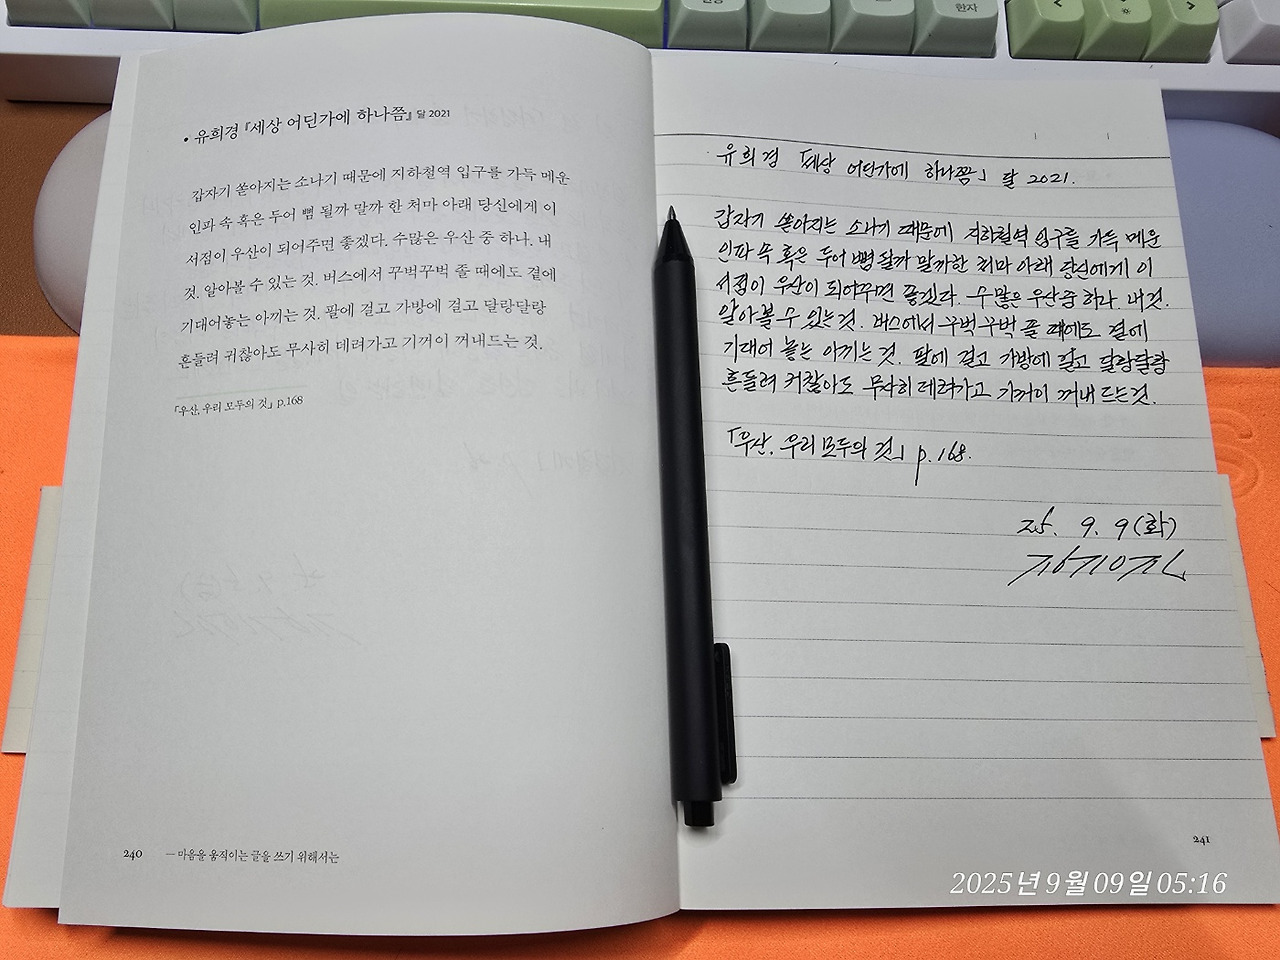 한자
• 유희경 『세상 어딘가에 하나쯤』 달 2021
갑자기 쏟아지는 소나기 때문에 지하철역 입구를 가득 메운
인파 속 혹은 두어 뼘 될까 말까 한 처마 아래 당신에게 이
서점이 우산이 되어주면 좋겠다. 수많은 우산 중 하나. 내
것. 알아볼 수 있는 것. 버스에서 꾸벅꾸벅 졸 때에도 곁에
기대어놓는 아끼는 것. 팔에 걸고 가방에 걸고 달랑달랑
흔들려 귀찮아도 무사히 데려가고 기꺼이 꺼내드는 것.
「우산, 우리 모두의 것」 p.168
240 — 마음을 움직이는 글을 쓰기 위해서는
유희경 「세상 어딘가에 하나쯤」 달 2021.
갑자기 쏟아지는 소나기 때문에 지하철역 입구를 가득 메운
인파 속 혹은 두어 뼘 될까 말까한 처마 아래 당신에게 이
서점이 우산이 되어주면 좋겠다. 수많은 우산 중 하나 내것.
알아볼 수 있는 것. 버스에서 꾸벅꾸벅 졸 때에도 곁에
기대어 놓는 아끼는 것. 팔에 걸고 가방에 걸고 달랑달랑
흔들려 귀찮아도 무사히 데려가고 기꺼이 꺼내 드는 것.
「우산, 우리 모두의 것」 p.168.
25. 9. 9(화)
241
2025년 9월 09일 05:16